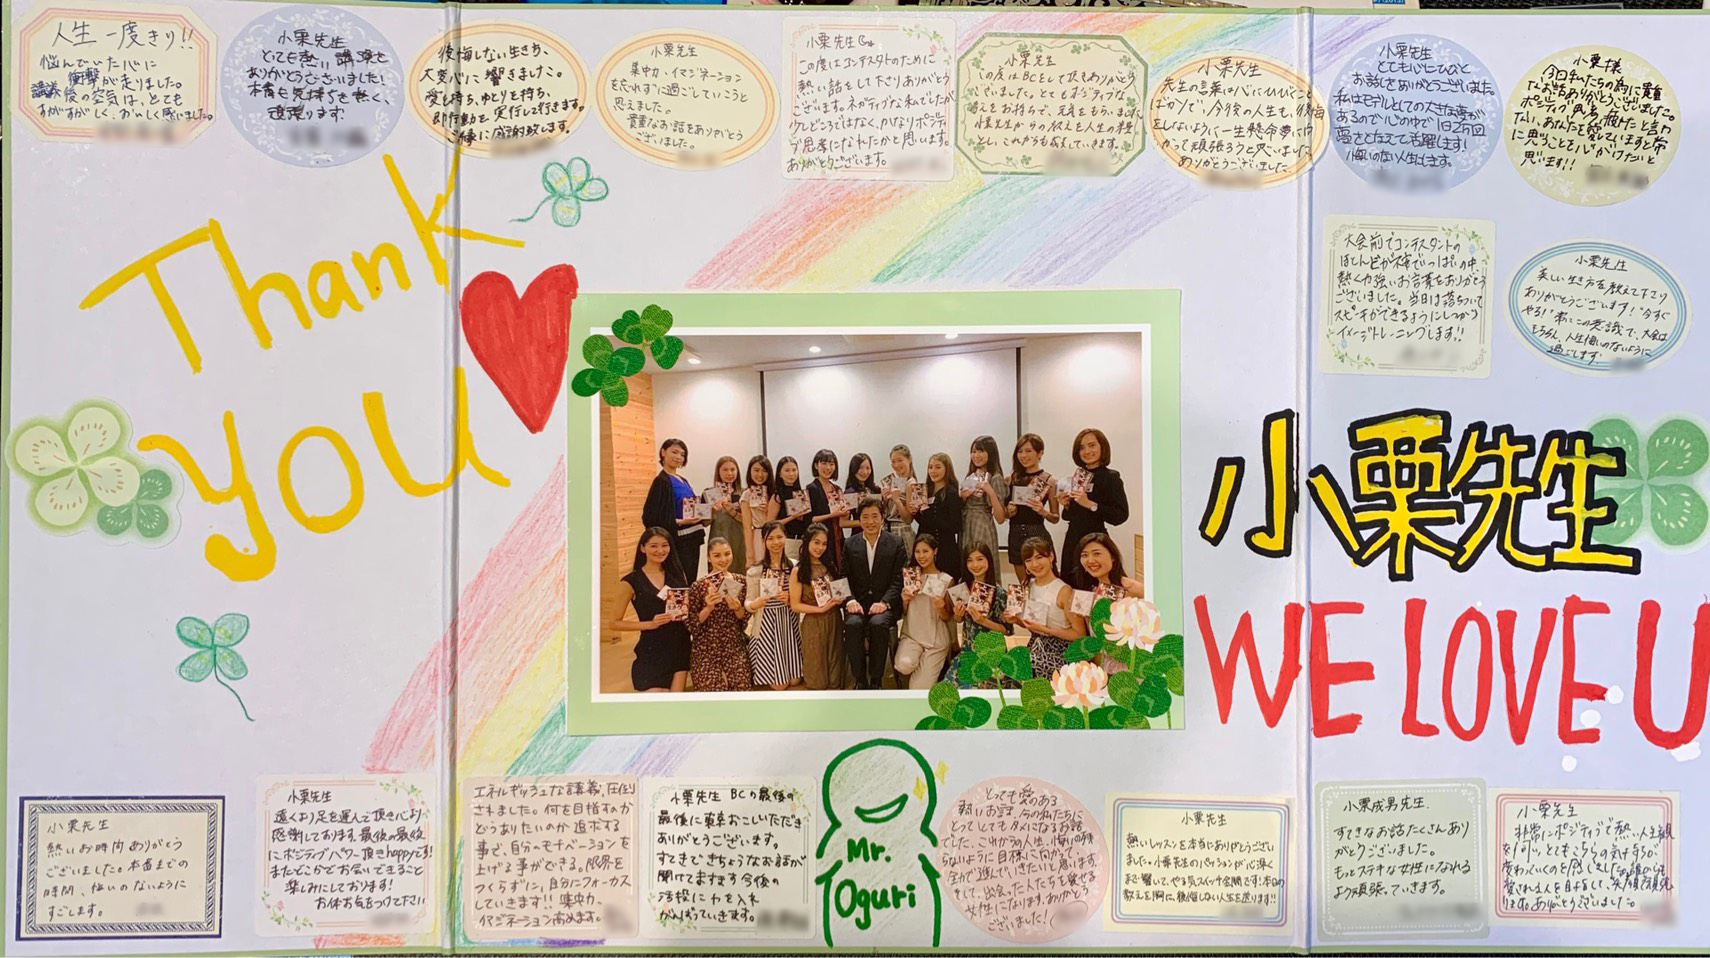 人生一度きり!!
悩んでいた心に
衝撃が走りました。
講義後の空気は、とても
すがすがしく、おいしく感いました。
小栗先生
とても熱い講演を
ありがとうございました!
本番も気持ちを熱く、
頑張ります。
後悔しない生き方、
大変心に響きました。
愛を持ち、ゆとりを持ち、
即行動を実行して行きます。
ご縁に感謝致します。
小栗先生
集中力、イマジネーション
を忘れずに過ごしていこうと
思えました。
貴重なお話をありがとう
ございました。
小栗先生
この度はコンテスタントのために
熱い話をして下さりありがとう
ございます。ネガティブな私でしたが
少しどころではなく、かなりポジティ
ブ思考になれたかと思います。
ありがとうございます。
小栗先生
この度はBCをして頂きありがとう
ございました。とてもポジティブな
考えをお持ちで、元気をもらいました。
小栗先生からの教えを人生の糧
とし、これからも
小栗先生
先生の言葉は心にひびくこと
ばかりで、今後の人生も、後悔
をしないように一生懸命夢に向
かって頑張ろうと思いました。
ありがとうございました。
小栗先生
とても心にひびく
お話をありがとうございました。
私はモデルとしての大きな夢が
あるので心の中で1日2万回
夢をとなえて活躍します!
悔いのない人生にします。
小栗様
今日私たちの為に貴重
なお話ありがとうございました。
ポジティブ
ない、あなたを愛していますと常
に思うことを心がけたいと
思います!!
大会前でコンテスタントの
ほとんどが不安でいっぱいの中、
熱く力強いお言葉をありがとう
ございました。当日は落ちついて
スピーチができるようにしっかり
イメージトレーニングします!!
小栗先生
美しい生き方を教えて下さり
ありがとうございます!“今すぐ
やる!”
もちろん、人生悔いのないように
過ごします。
Thank
YOU
小栗先生
WE LOVE U
小栗先生
熱いお時間ありがとう
ございました。本番までの
時間、悔いのないように
すごします。
小栗先生
遠くより足を運んで頂き心より
感謝しております。最後の最後
にポジティブパワー頂きhappyです!
またどこかでお会いできること
楽しみにしております!
お体お気をつけて下さい
エネルギッシュな講義、圧倒
されました。何を目指すのか
どうありたいのか追求する
事で、自分のモチベーションを
上げる事ができる。限界を
つくらずに、自分にフォーカス
していきます!!集中力、
イマジネーション高めます。
小栗先生 BCの最後の
最後に東京おこしいただき
ありがとうございます。
すてきできちょうなお話が
聞けてますます今後の
活投に力を入れ
がんばっていきます。
Mr.
Oguri
とっても愛のある
熱いお話、今の私たちに
とってとてもタメになるお話
でした。これからの人生、悔いの残
らないように目標に向かって
全力で進んでいきたいと思います。
そして、出会った人たちを愛せる
女性になります。ありがとう
ございました!
小栗先生
熱いレッスンを本当にありがとうござい
ました。小栗先生のパッションが心深く
まで響いて、やる気スイッチ全開です!本日の
教えを胸に、後悔しない人生を送ります!!
小栗成男先生.
すてきなお話たくさんあり
がとうございました。
もっとステキな女性になれる
よう頑張っていきます。
小栗先生
非常にポジティブで熱い人生観
を伺い、とてもこちらの気持ちが
変わっていくのを
愛される人を目指して、笑顔で頑張
ります。ありがとうございました。